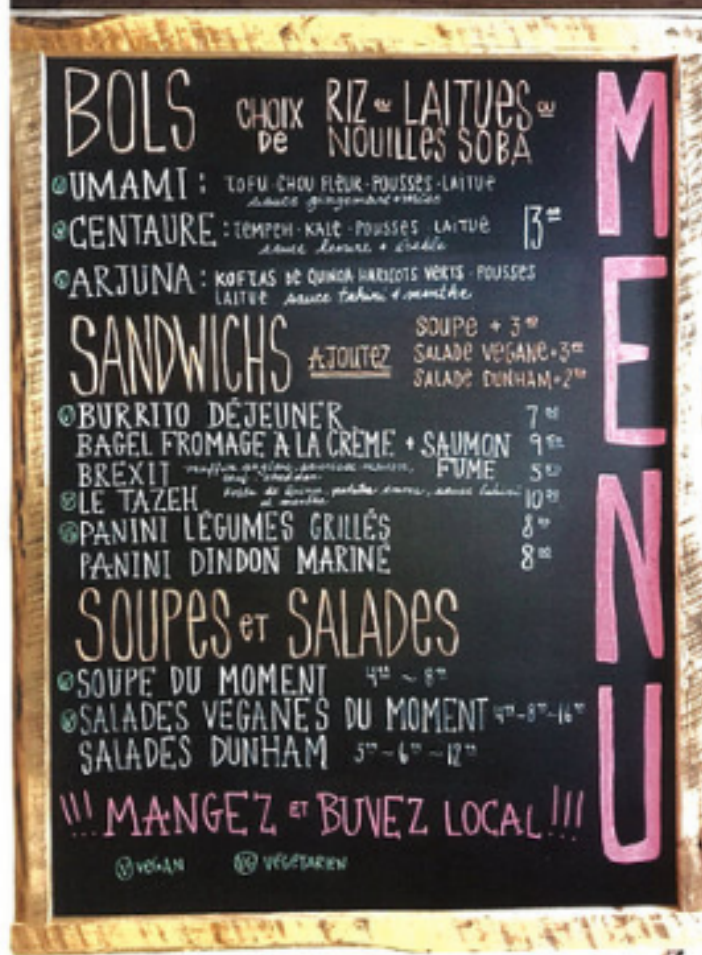 MENU
BOLS CHOIX DE RIZ ou LAITUES ou NOUILLES SOBA
UMAMI : TOFU · CHOU FLEUR · POUSSES · LAITUE
sauce gingembre miso
CENTAURE : TEMPEH · KALE · POUSSES · LAITUE
sauce levure + érable
13
ARJUNA : KOFTAS DE QUINOA HARICOTS VERTS · POUSSES
LAITUE sauce tahini + menthe
SANDWICHS AJOUTEZ
SOUPE + 3
SALADE VEGANE + 3
SALADE DUNHAM + 2
BURRITO DÉJEUNER 7
BAGEL FROMAGE A LA CRÈME + SAUMON FUMÉ 9
BREXIT muffin anglais 5
LE TAZEH 10
et menthe
PANINI LÉGUMES GRILLÉS 8
PANINI DINDON MARINÉ 8
SOUPES ET SALADES
SOUPE DU MOMENT 4 ~ 8
SALADES VEGANES DU MOMENT 4 ~ 8 ~ 16
SALADES DUNHAM 5 ~ 6 ~ 12
!!! MANGEZ ET BUVEZ LOCAL !!!
V VEGAN VG VÉGÉTARIEN